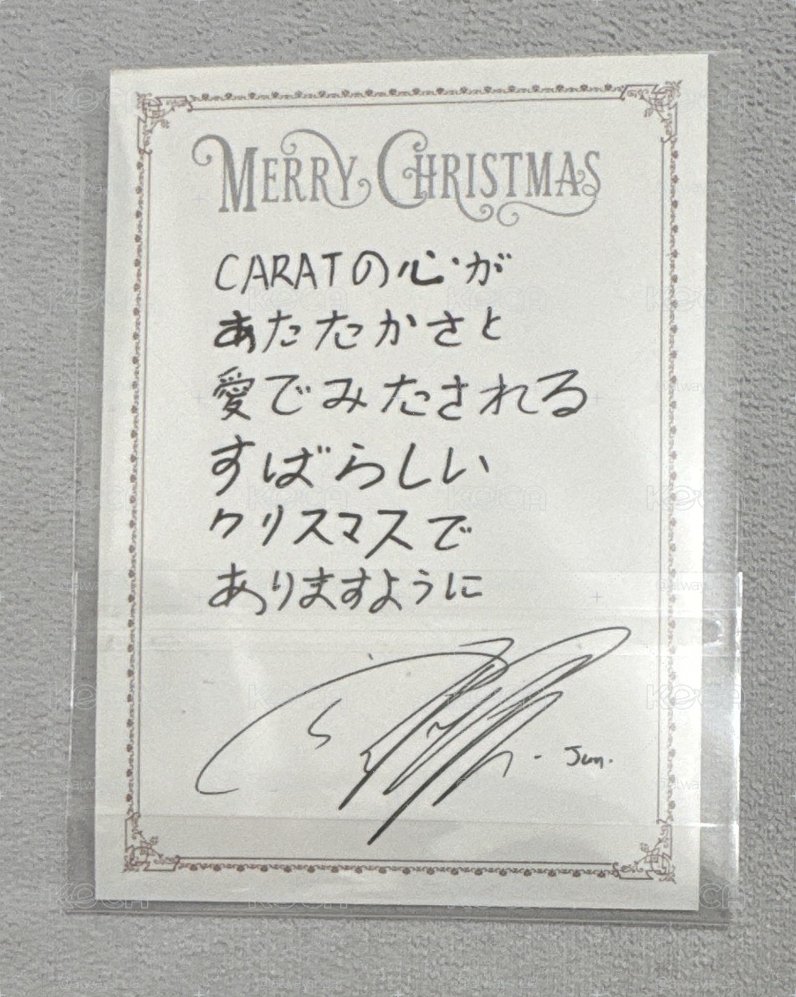 MERRY CHRISTMAS
CARATの心が
あたたかさと
愛でみたされる
すばらしい
クリスマスで
ありますように
- Jun.